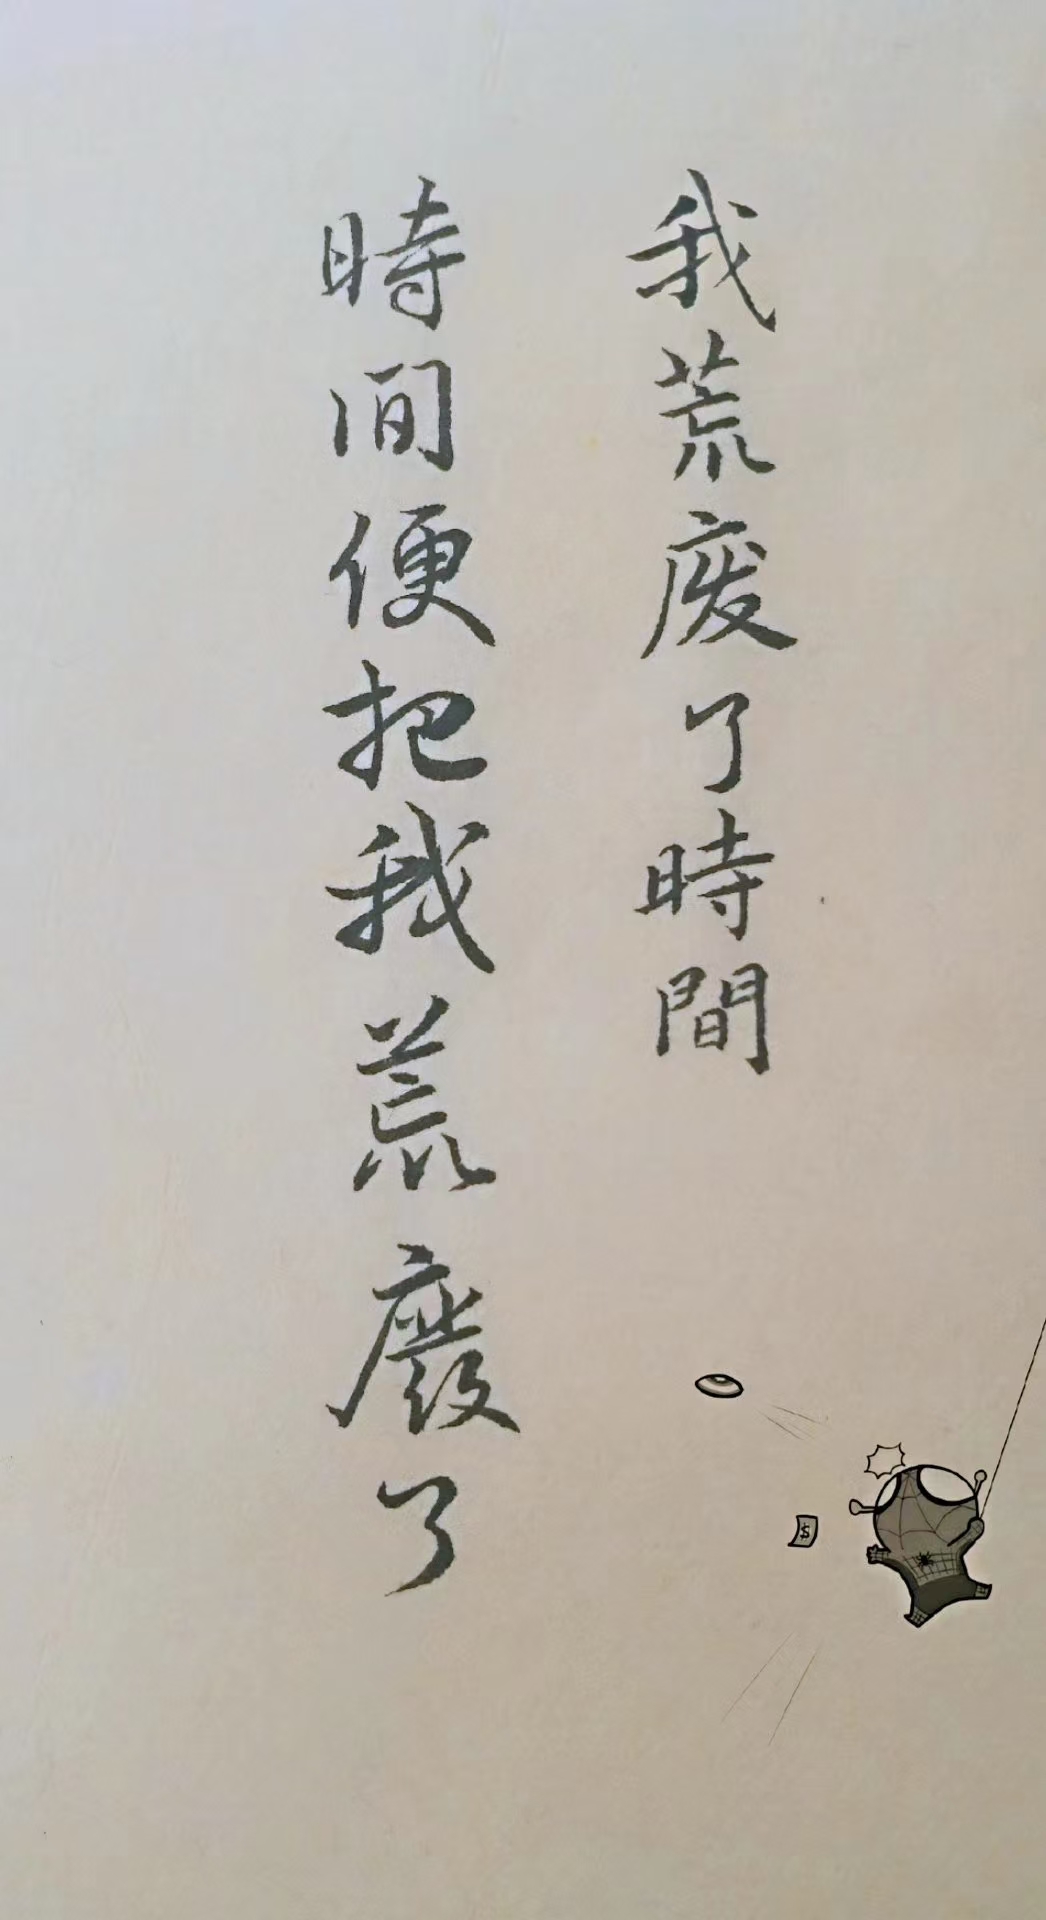 我荒废了時間
時间便把我荒廢了
$